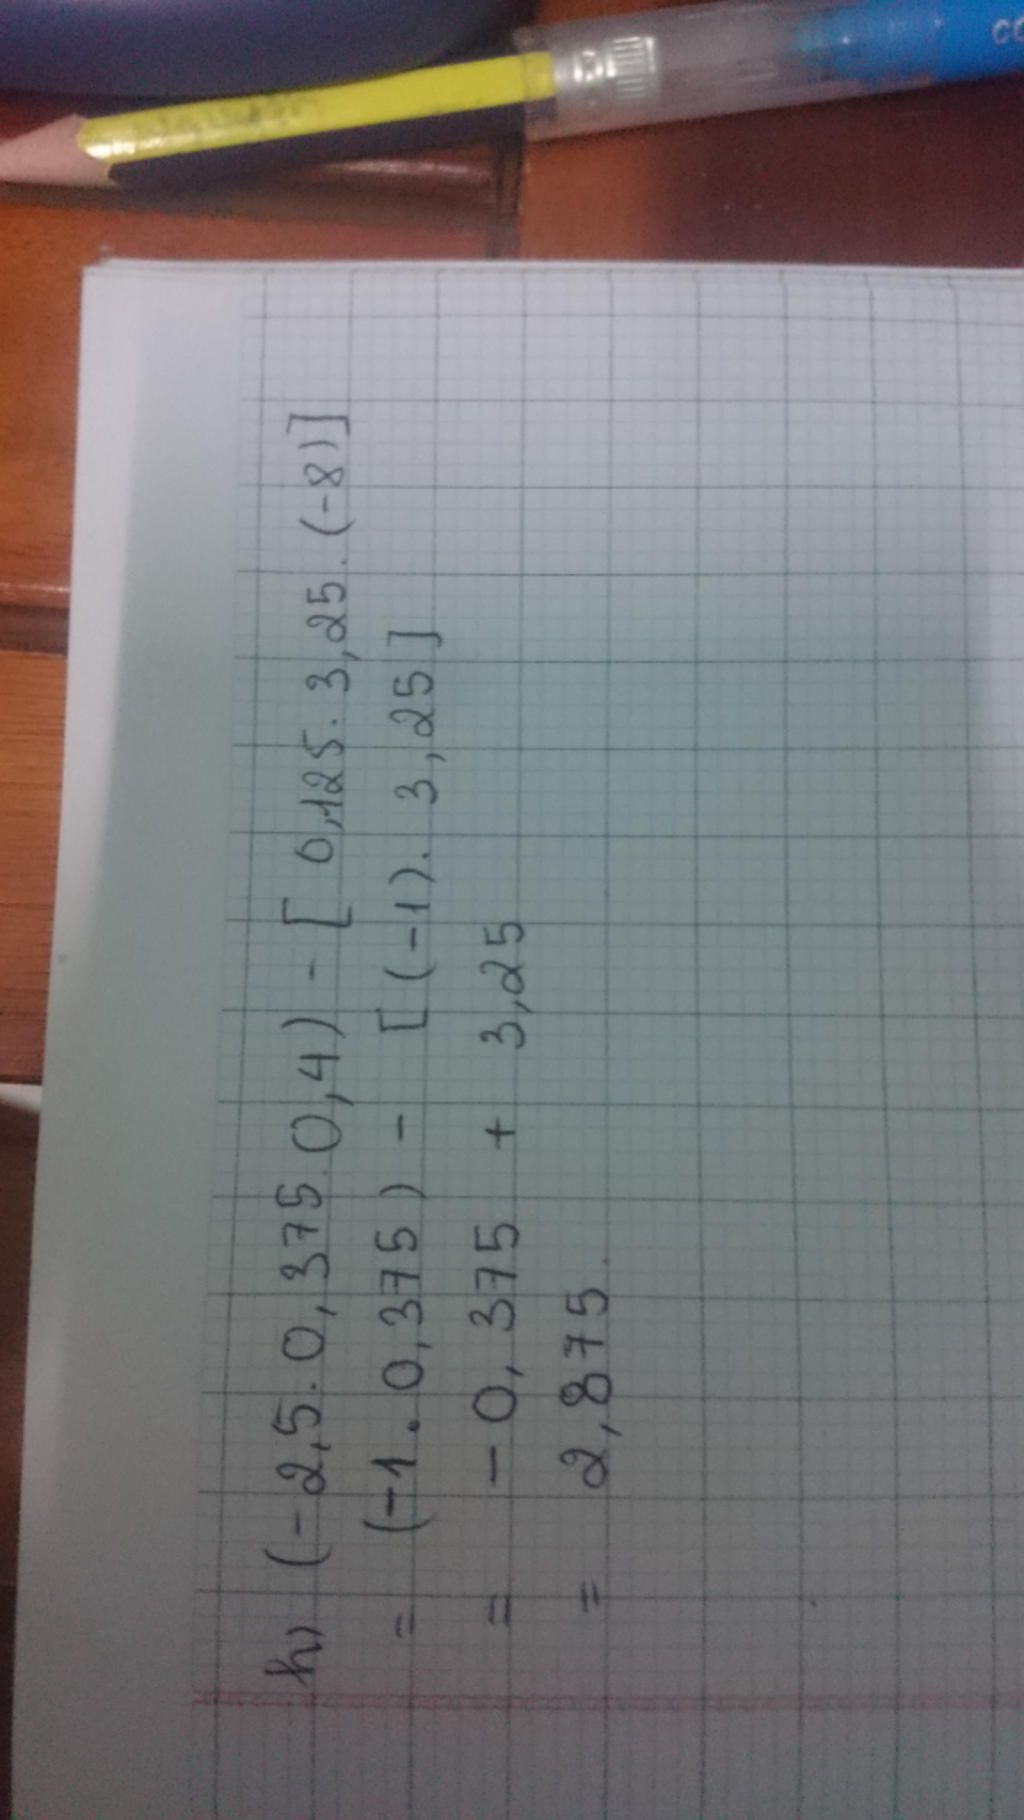 h) (-2,5.0,375.0,4) - [0,125.3,25.(-8)]
= (-1.0,375) - [(-1).3,25]
= -0,375 + 3,25
= 2,875.